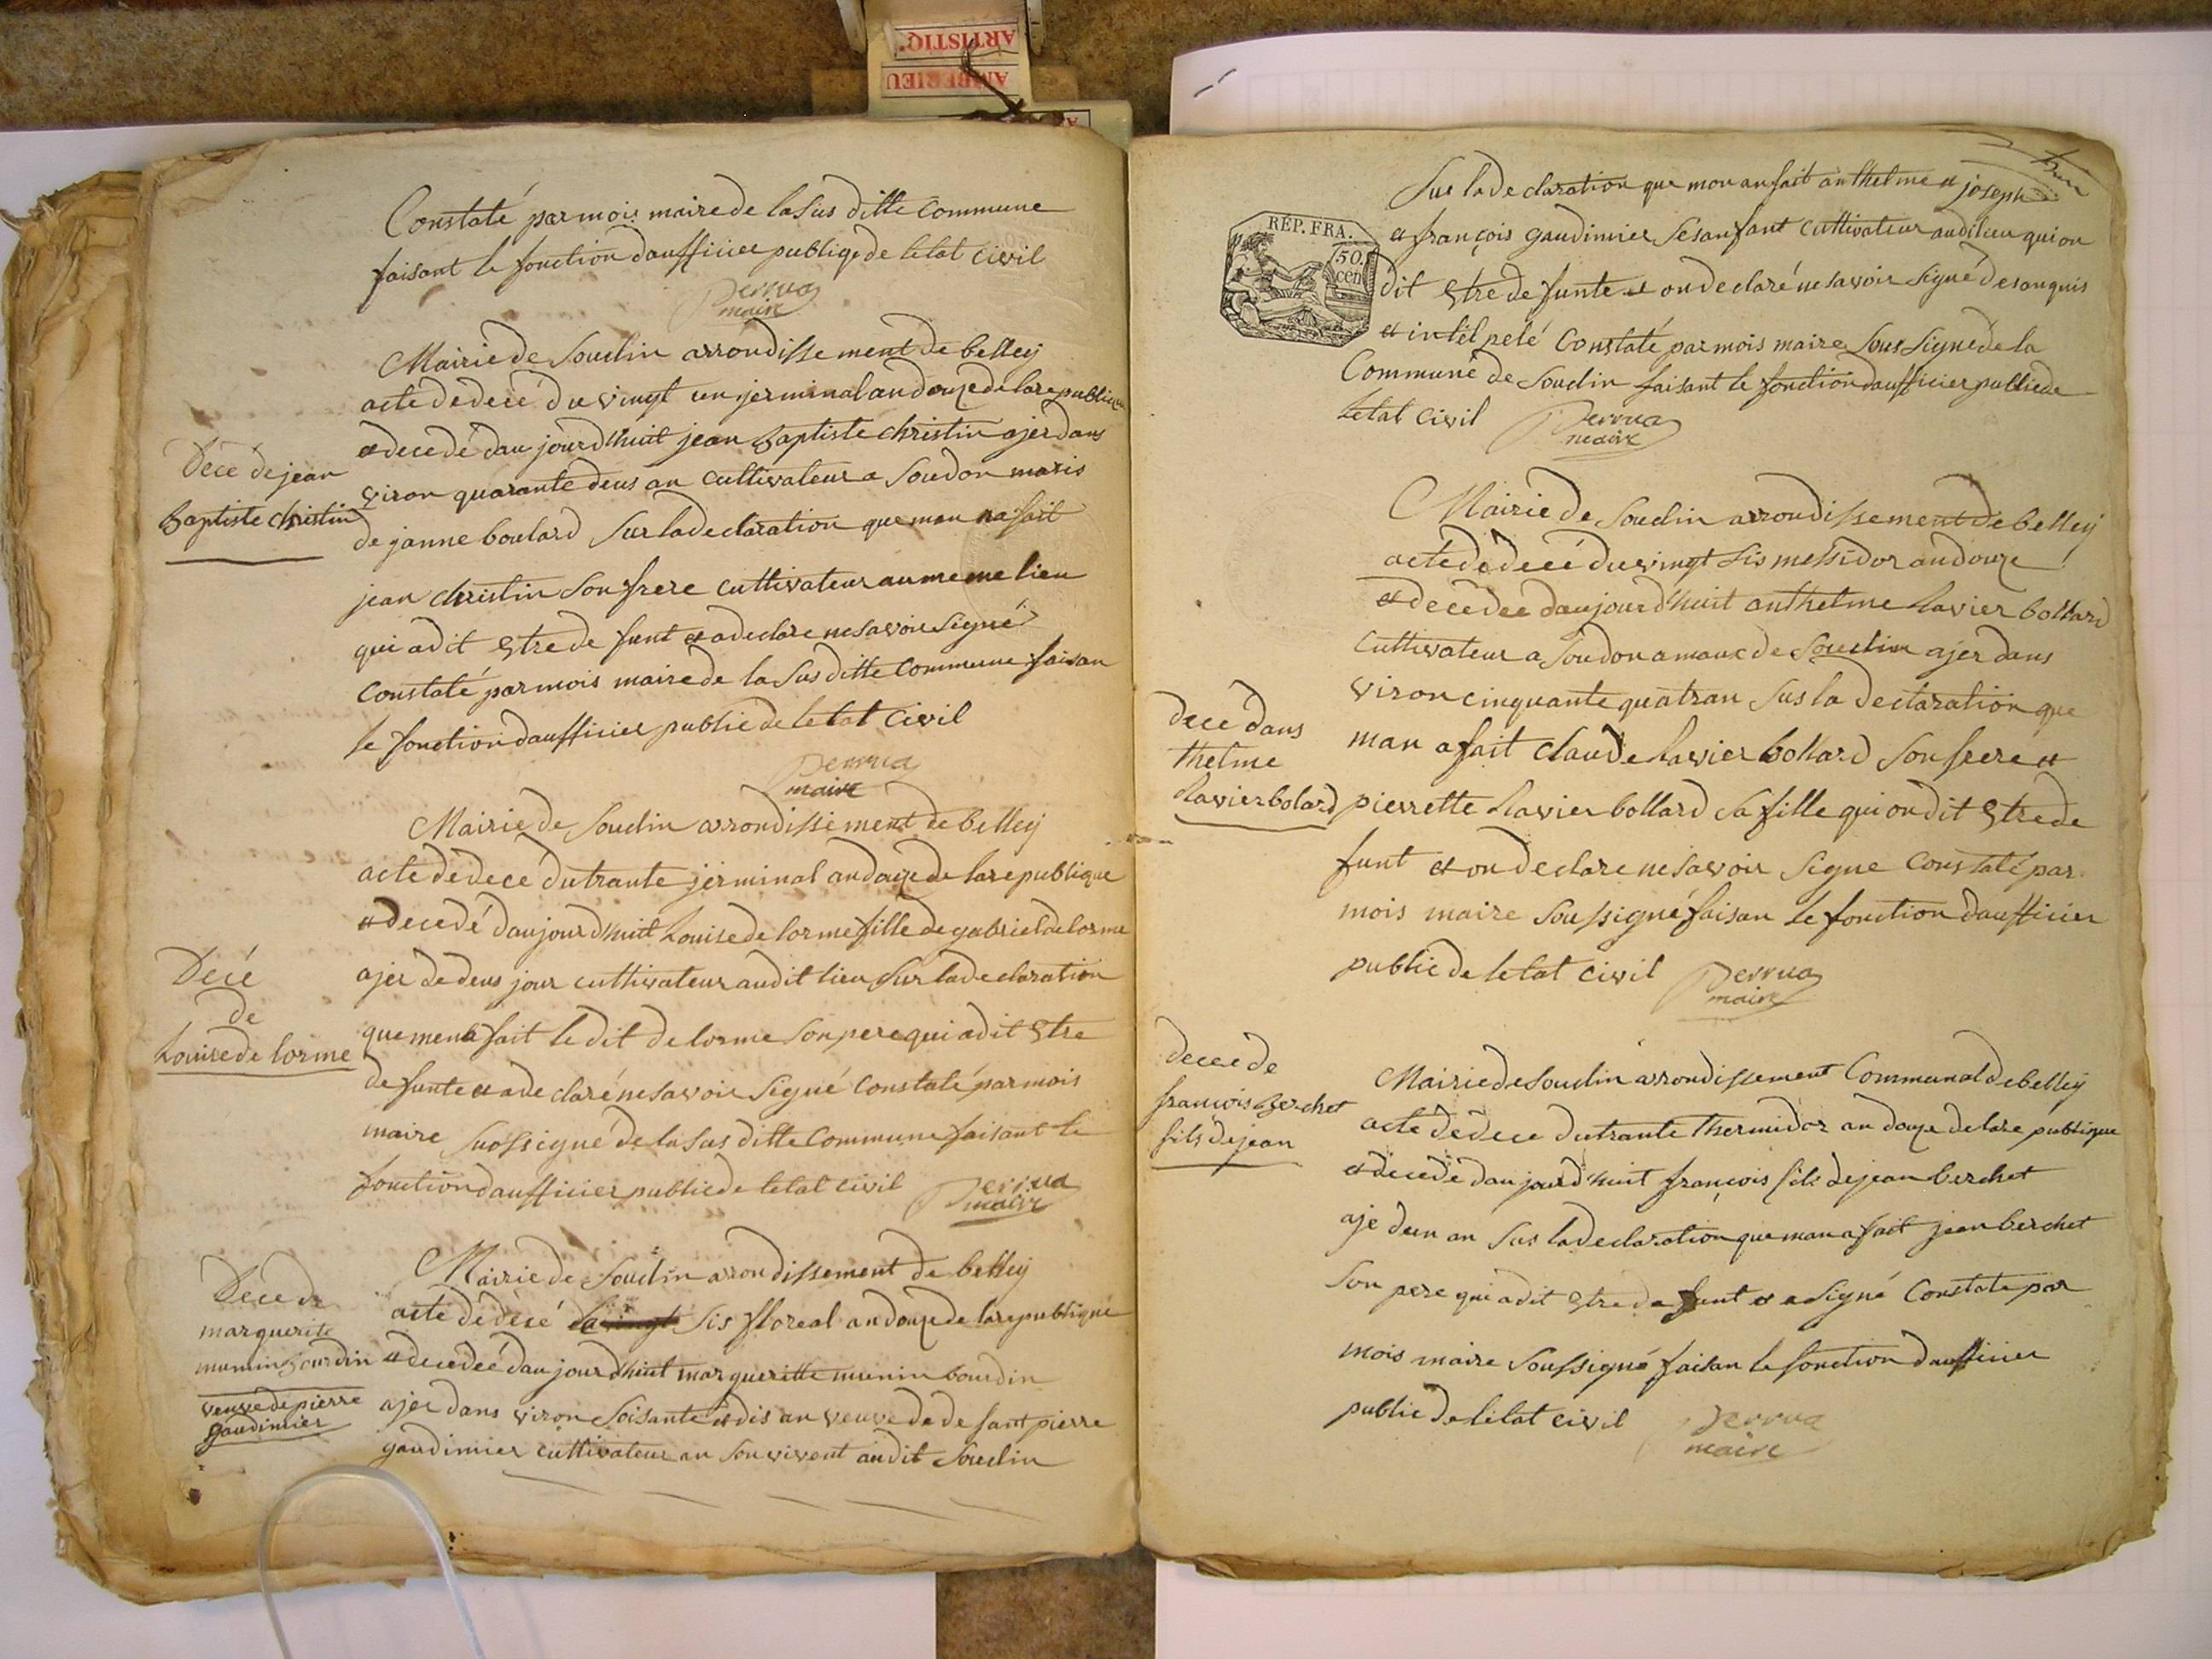 ARTISTIQ.
AMBERIEU
Constaté par mois maire de la Sus ditte Commune
faisant le fonction daufficier publiqe de letat civil
Perrua
maire
Mairie de Souclin arrondissement de belley
acte de decé du vingt un jerminal an douze de la republique
et decedé daujourdhuit jean Baptiste christin ajer dans
viron quarante deus an cultivateur a Soudon maris
de janne boulard Sur la declaration que man na fait
jean christin Son frere cultivateur au meme lieu
qui a dit Etre de funt et a declare ne savoir Signé
Constaté par mois maire de la Sus ditte Commune faisan
le fonction daufficier public de letat Civil
Perrua
maire
Décé de jean
Baptiste christin
Mairie de Souclin arrondissement de belley
acte de dece du trante jerminal an douze de la republique
et decedé daujourdhuit Louise de lorme fille de gabriel delorme
ajer de deus jour cultivateur audit lieu Sur la declaration
que mena fait le dit de lorme Son pere qui a dit Etre
de funte et a declaré ne savoir Signé Constaté par mois
maire Suossigné de la Sus ditte Commune faisant le
fonction daufficier public de letat civil
Perrua
maire
Décé
de
Louise de lorme
Mairie de Souclin arrondissement de belley
acte de décé Sis floreal an douze de la republique
et decedeé daujourdhuit margueritte munin bourdin
ajer dans viron Soisante et dis an veuve de de funt pierre
gaudimier cultivateur an Son vivent audit Souclin
Dece de
marguerite
munin bourdin
veuve de pierre
gaudimier
Sur la declaration que mon an fait anthelme et joseph
et françois gaudimier Ses anfant cultivateur audi lieu qui on
RÉP. FRA.
50.
cen
dit Etre de funte et on declaré ne savoir Signé de san quis
et intél pelé Constaté par mois maire Sous Signé de la
Commune de Souclin faisant le fonction daufficier public de
letat civil
Perrua
maire
Mairie de Souclin arrondissement de belley
acte de décé du vingt Sis messidor an douze
et decedee daujourdhuit anthelme Ravier bollard
Cultivateur a Soudon amaux de Souclin ajer dans
viron cinquante quatran Sus la declaration que
man a fait claude Ravier bollard Son frere et
pierrette Ravier bollard Sa fille qui on dit Etre de
funt et on declare ne savoir Signe Constaté par
mois maire Soussigné faisan le fonction daufficier
public de letat civil
Perrua
maire
decé dans
thelme
Ravier bolard
Mairie de Souclin arrondissement Communal de belley
acte de dece du trante thermidor an douze de la republique
et decedé daujourdhuit françois fils de jean berchet
aje dun an Sus la declaration que man a fait jean berchet
Son pere qui a dit Etre de funt et a Signé Constate par
mois maire Soussigné faisan le fonction daufficier
public de letat civil
Perrua
maire
decede
françois Berchet
fils de jean